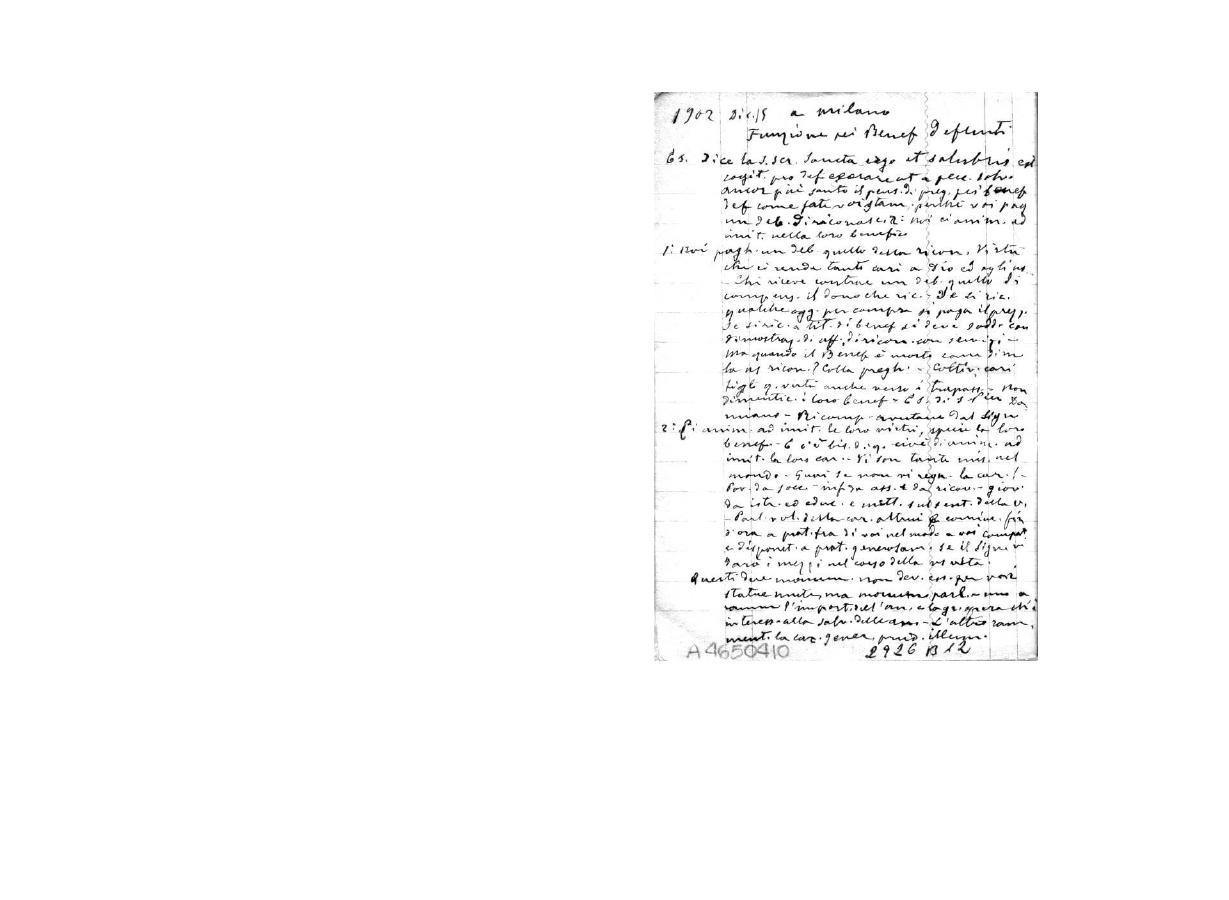 1902 Dic. 15 a Milano
Funzione pei Benef Defunti
Es. Dice la s. scr. Sancta ergo et salubris est
cogit. pro def exorare ut a pecc. solv.
ancor più santo il pens. di preg. pei benef
def come fate voi stam. perché voi pag
un deb. di riconosc.: noi ci anim. ad
imit. nella loro benefic.
1: Noi pagh. un deb. quello della ricon. Virtù
che ci rende tanto cari a Dio ed agli uo.
- Chi riceve contrae un deb. quello di
compens. il dono che ric. - Se si ric.
qualche ogg. per compra si paga il prezz.
Se si ric. a tit. di benef si deve sodd. con
dimostraz. di aff. di ricon. con servizi -
Ma quando il Benef è morto come dim
la ns ricon.? Colla pregh. - Coltiv. cari
figli q. virtù anche verso i trapass. - Non
dimentic. i loro benef - Es. di s Pier Da
miano - Ricomp. avutane dal Sign
2: Ci anim. ad imit. le loro virtù, specie la loro
benef - E c'è bis. di q. cioè di anim. ad
imit. la loro car. - Vi son tante mis. nel
mondo - Guai se non vi regn. la car.! -
Pov. da socc. - inf. da ass. e da ricov. - giov.
da istr. ed educ. e mett. sul sent. della v.
- Part. vol. della car. altrui e cominc. fin
d'ora a prat. fra di voi nel modo a voi compat.
e disponet. a prat. generosam. se il Sign vi
darà i mezzi nel corso della vs vita.
Questi due monum. non dev. ess. per voi
statue mute, ma monum. parl. - uno a
ramm l'import. dell'an. e la gr. opera ch'è
interess. alla salv. delle an. - L'altro ram.
ment. la car. gener. prud. illum.
A4650410 2926 B12